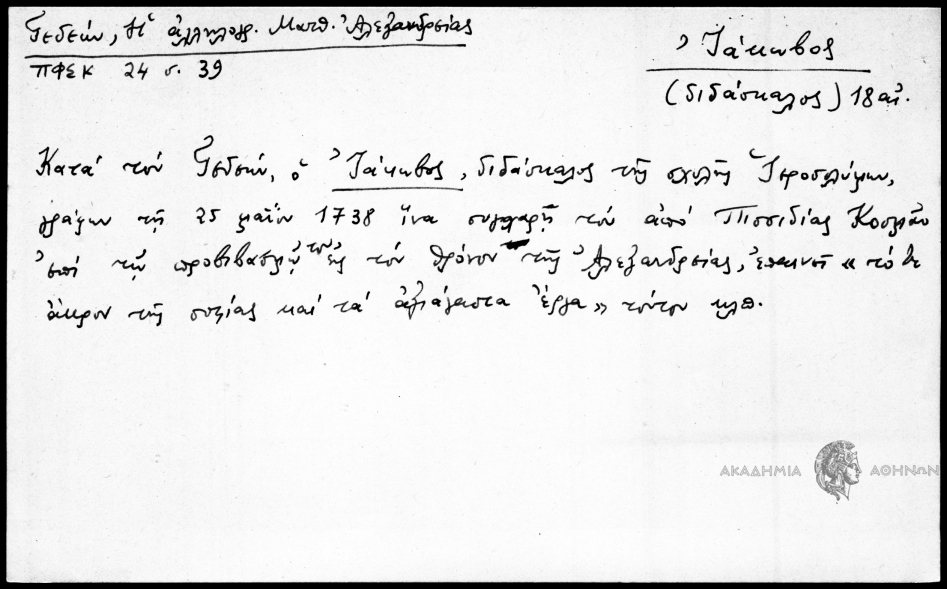 Γεδεών, Ἡ ἀλληλογρ. Ματθ. Ἀλεξανδρείας
ΠΦΣΚ 24 σ. 39
Ἰάκωβος
(διδάσκαλος) 18 αἰ.
Κατά τόν Γεδεών, ὁ Ἰάκωβος, διδάσκαλος τῆς σχολῆς Ἱεροσολύμων,
γράφων τῇ 25 μαΐου 1738 ἵνα συγχαρῇ τόν ἀπό Πισσιδίας Κοσμᾶν
ἐπί τῇ προβιβασμῷ του εἰς τόν θρόνον τῆς Ἀλεξανδρείας, ἐπαινεῖ «τό
ἄκρον τῆς σοφίας καί τά ἀξιάγαστα ἔργα» τούτου κλπ.
ΑΚΑΔΗΜΙΑ ΑΘΗΝΩΝ